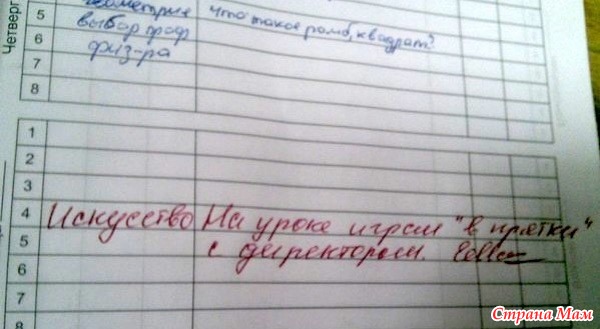 Четверг
5 геометрия Что такое ромб, квадрат?
6 выбор проф
7 физ-ра
8
1
2
3
4 Искусство На уроке играл "в прятки"
5 с директором.
6
7
8
Страна Мам